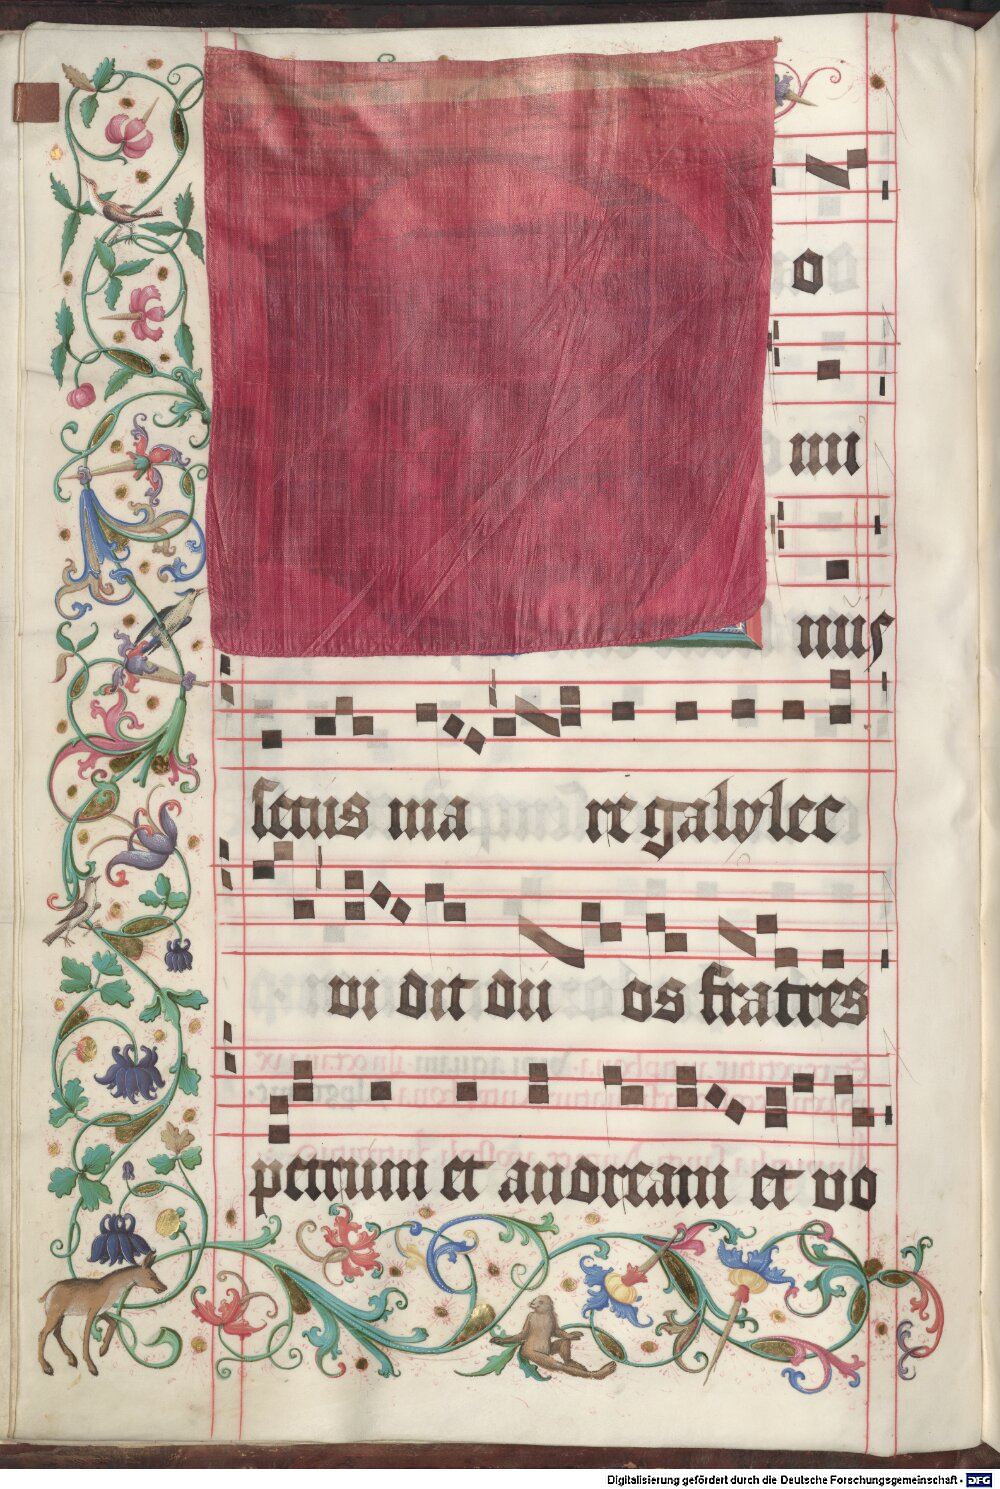 o
mi
nus
secus ma re galylee
vi dit du os fratres
petrum et andream et vo
Digitalisierung gefördert durch die Deutsche Forschungsgemeinschaft - DFG